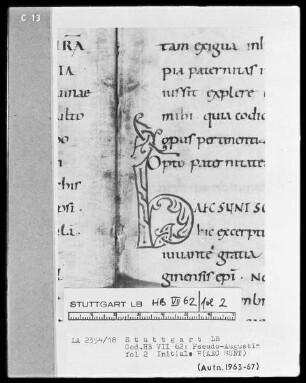 C 13
IRĀ
IA
inae
ulto
orbis
ipsi.
tam exigua inb
pia paternitas i
iussit explere
mibi quia codic
opus portionenti
Opto paternitate
HAEC SUNT SC
hic excerpti
iuuante gratia
ginensis epi. N
STUTTGART LB HB VII 62 / fol 2
LA 2394/18 Stuttgart LB
Cod.HB VII 62: Pseudo-Augustin
fol 2 Initiale H(AEC SUNT)
(Aufn.1963-67)